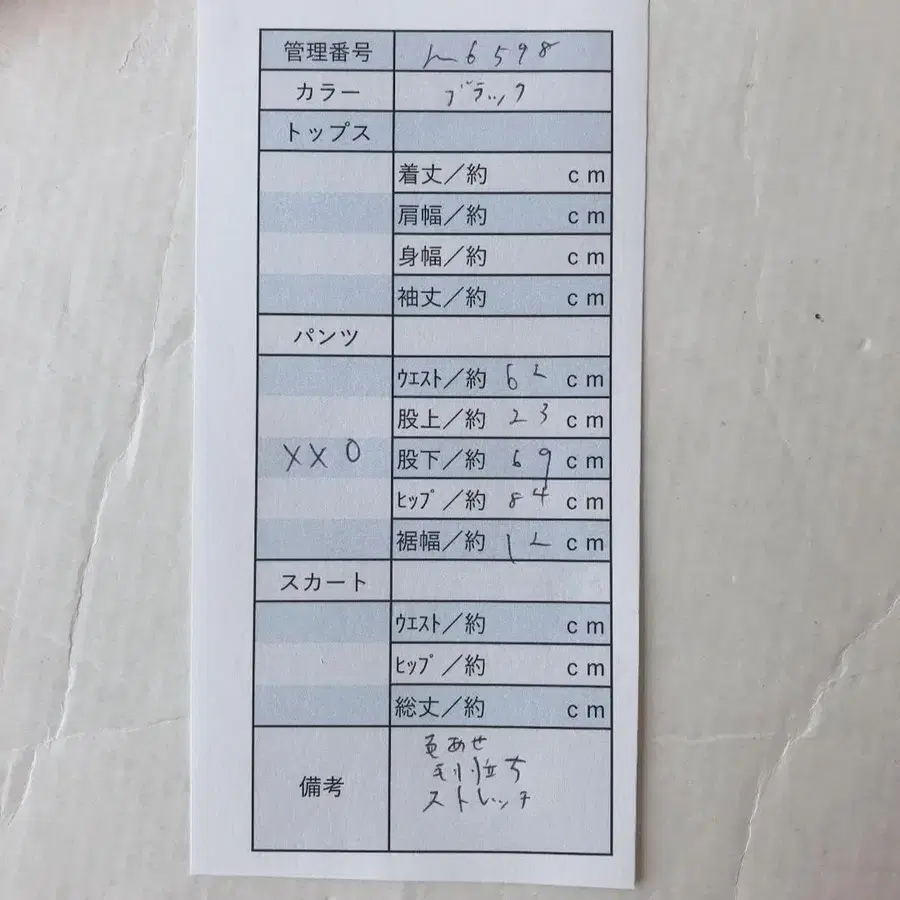 管理番号 m6598
カラー ブラック
トップス
着丈／約 cm
肩幅／約 cm
身幅／約 cm
袖丈／約 cm
パンツ
ウエスト／約 62 cm
股上／約 23 cm
XXO 股下／約 69 cm
ヒップ／約 84 cm
裾幅／約 12 cm
スカート
ウエスト／約 cm
ヒップ／約 cm
総丈／約 cm
色あせ
備考 毛羽立ち
ストレッチ